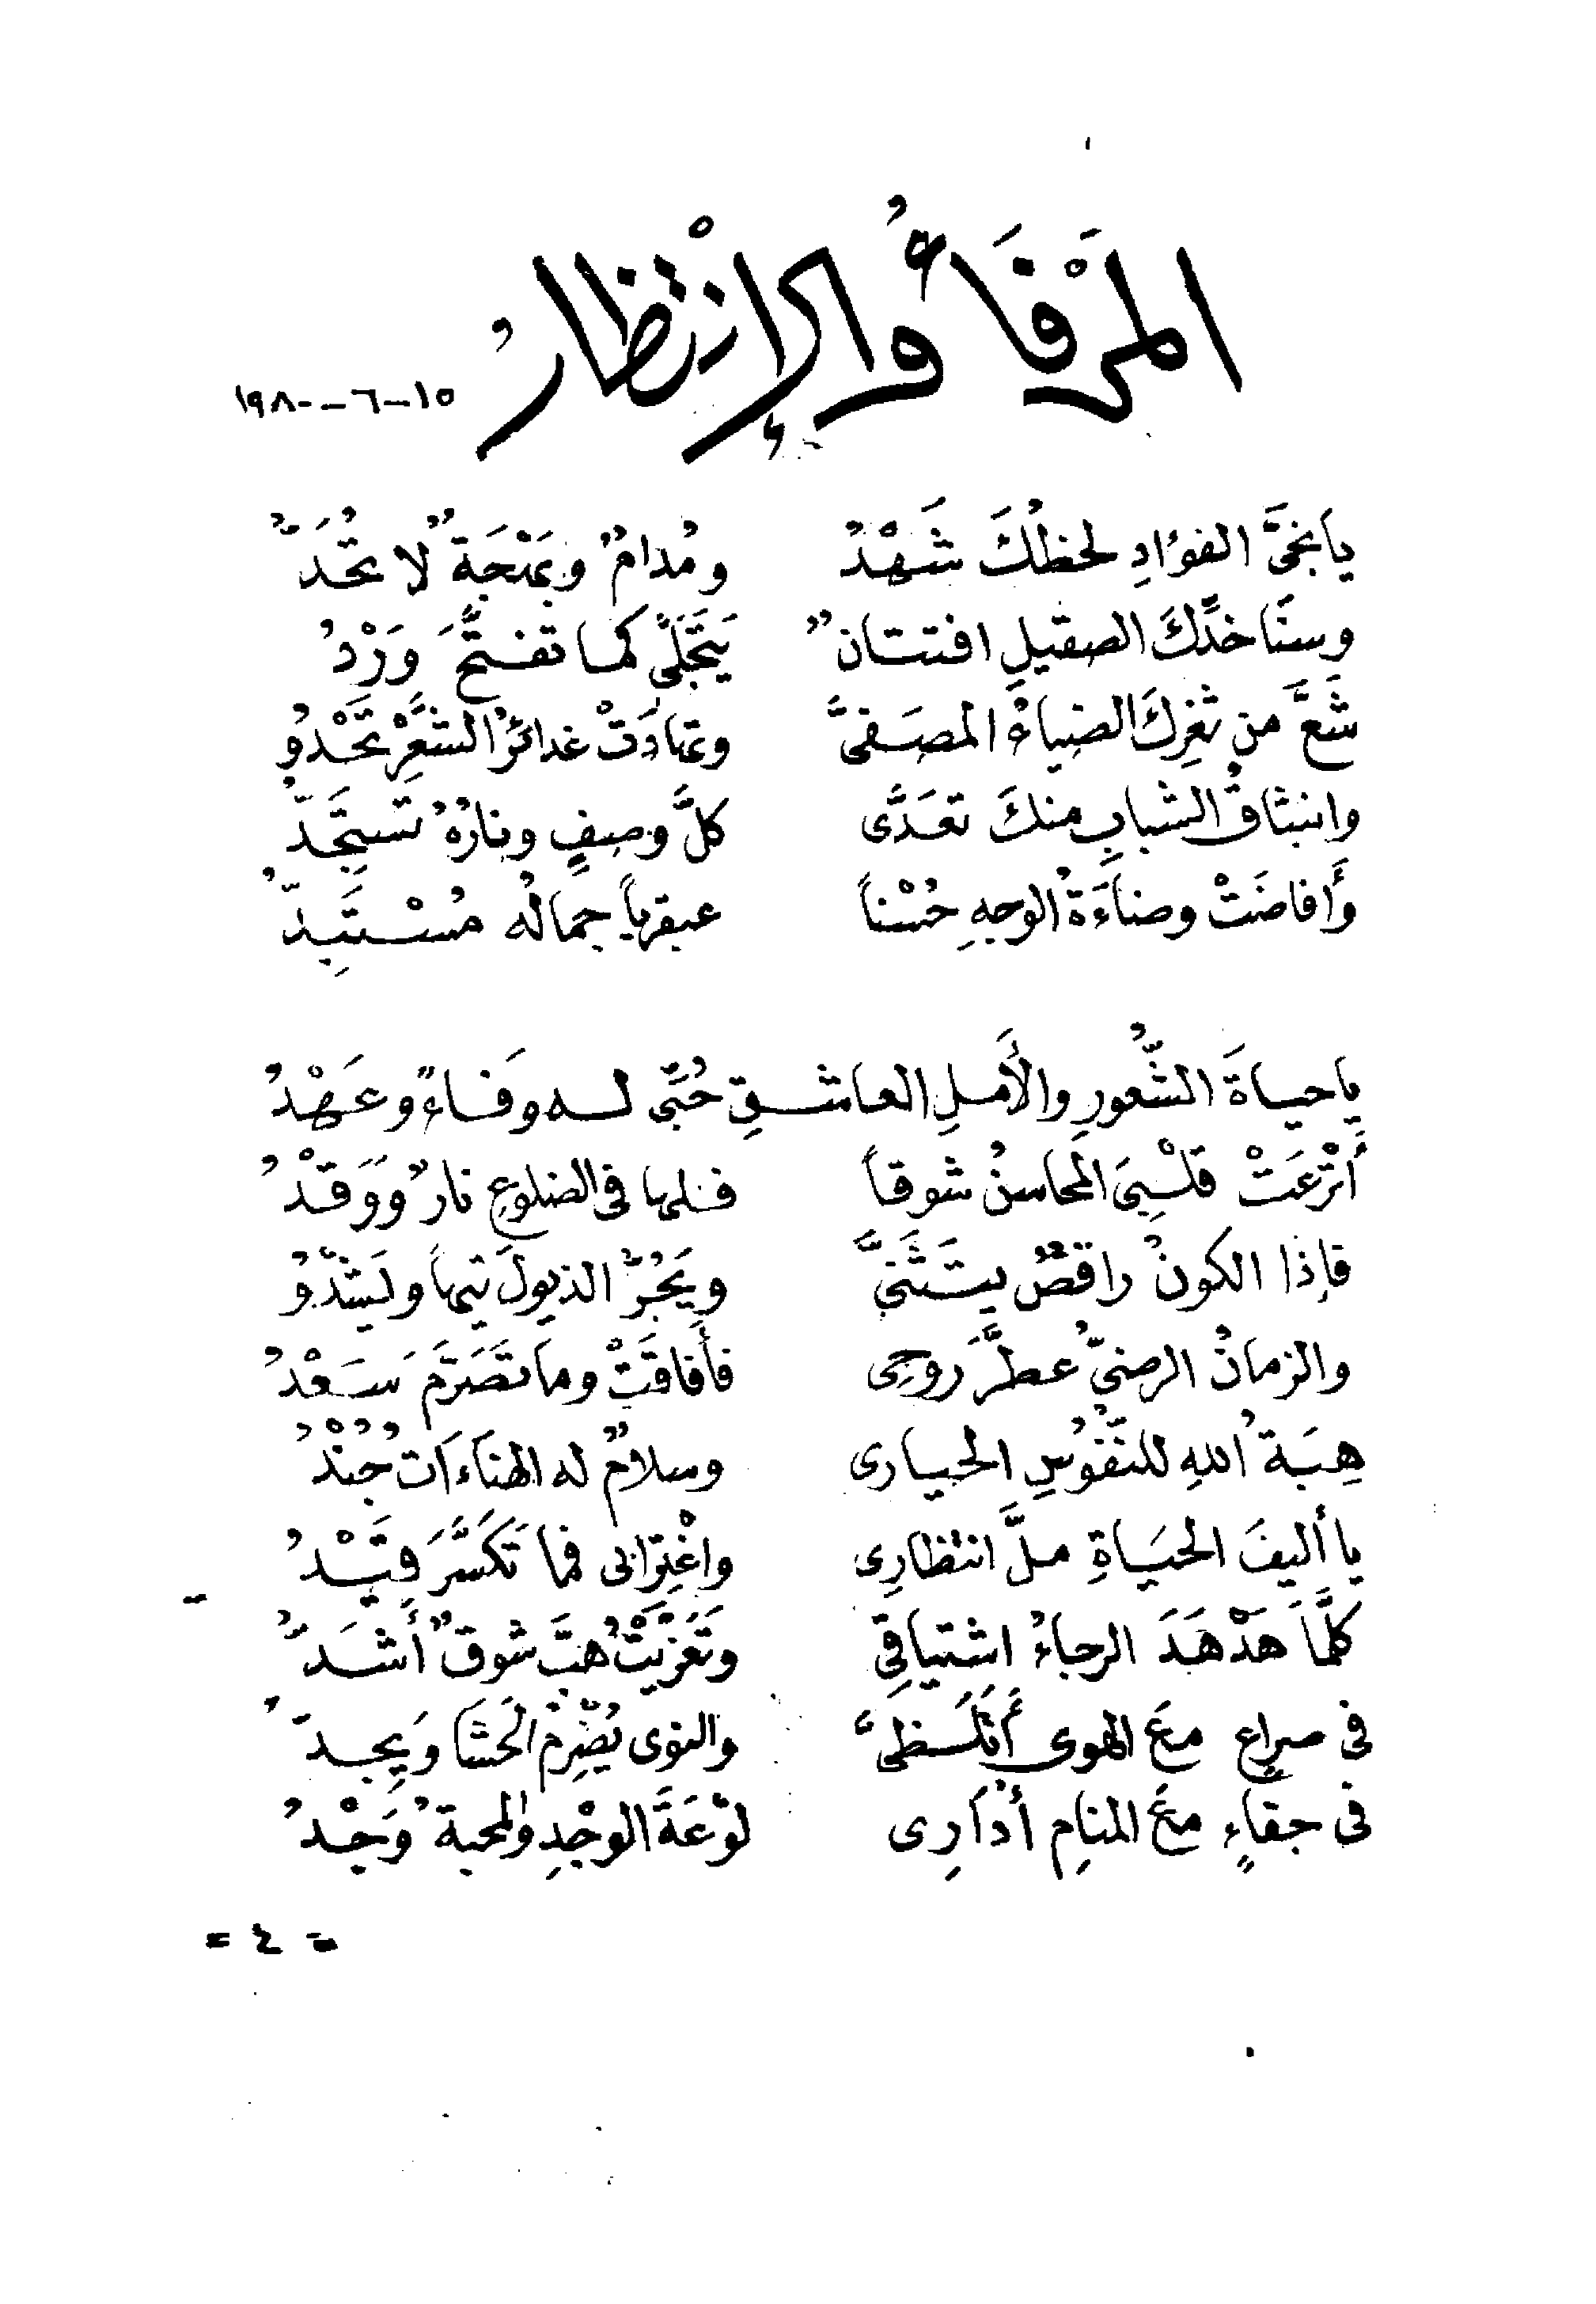 المَرْفَأُ والإنْتظارُ
١٥-٦-١٩٨٠
يا نجَيَّ الفؤادِ لحظُكَ شَهْدُ ومُدامٌ وبَهْجَةٌ لا تُحَدُّ
وسنَا خدِّكَ الصقيلِ افتتانٌ يَتَجَلَّى كما تفتَّحَ وَرْدُ
شَعَّ من ثغرِكَ الضياءُ المصَفىَّ وتهادَتْ غدائرُ الشَّعْرِ تَحْدُو
وانبثاقُ الشبابِ منكَ تعَدَّى كلَّ وصفٍ ونارُهُ تَسْتَجِدُّ
وأَفاضَتْ وضاءَةُ الوجهِ حُسْناً عبقرياً جمالُه مُسْتَبِدُّ
يا حياةَ الشُّعورِ والأَملِ العاشقِ حُبّى له وَفاءٌ وعَهْدُ
أَتْرعَتْ قلْبِىَ المحاسنُ شوقاً فلها فى الضلوعِ نارٌ ووَقْدُ
فإذا الكونُ راقصٌ يتَثَنىَّ ويَجُرُّ الذيولَ تيهاً ويَشْدُو
والزمانُ الرضىُّ عطَّرَ روحِى فأَفاقَتْ وما تَصَرَّمَ سَعْدُ
هِبَةُ اللهِ للنُّفُوسِ الحيارى وسلامٌ له الهنَاءَاتُ جُنْدُ
يا أليفَ الحيَاةِ ملَّ انتظارِى واغْتِرَابى فما تَكَسَّرَ قَيْدُ
كلَّمَا هَدْهَدَ الرجاءُ اشتياقِى وتَعَزَّيْتُ هبَّ شوقٌ أَشدُّ
فى صراعٍ معَ الهوى أَتَلَظىَّ والنوى يُضْرِمُ الحَشَا وَيجِدُّ
فى جفاءٍ معَ المنامِ أُدَارِى لوْعَةَ الوجْدِ والمحبةُ وَجْدُ
= ٤ =